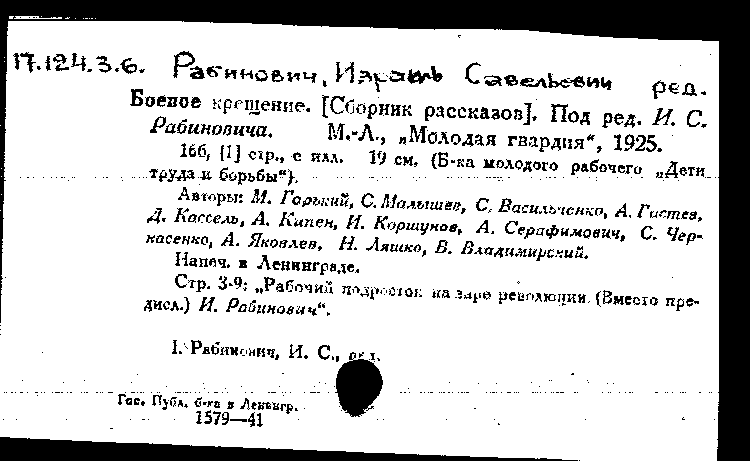 17.124.3.6. Рабинович, Израиль Савельевич ред.
Боевое крещение. [Сборник рассказов]. Под ред. И. С.
Рабиновича. М.-Л., „Молодая гвардия“, 1925.
166, [1] стр., с илл. 19 см. (Б-ка молодого рабочего „Дети
труда и борьбы“).
Авторы: М. Горький, С. Малышев, С. Васильченко, А. Гастев,
Д. Кассель, А. Кипен, И. Коршунов, А. Серафимович, С. Чер-
касенко, А. Яковлев, Н. Ляшко, В. Владимирский.
Напеч. в Ленинграде.
Стр. 3-9: „Рабочий подросток на заре революции. (Вместо пре-
дисл.) И. Рабинович“.
I. Рабинович, И. С., ред.
Гос. Публ. б-ка в Ленингр.
1579—41